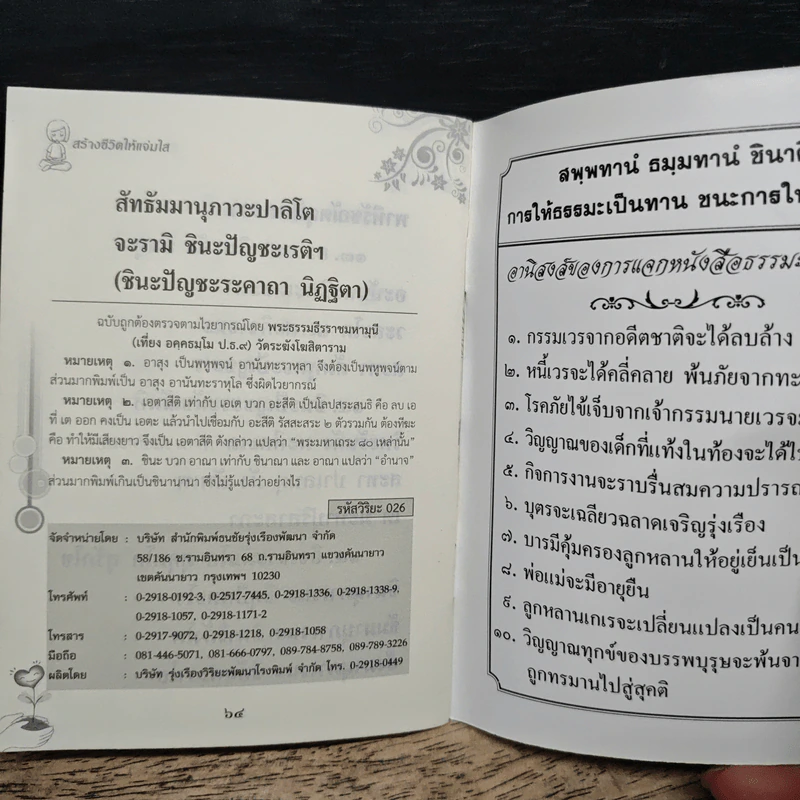 สร้างชีวิตให้แจ่มใส
สัทธัมมานุภาวะปาลิโต
จะรามิ ชินะปัญชะเรติฯ
(ชินะปัญชะระคาถา นิฏฐิตา)
ฉบับถูกต้องตรวจตามไวยากรณ์โดย พระธรรมธีรราชมหามุนี
(เที่ยง อคฺคธมฺโม ป.ธ.๙) วัดระฆังโฆสิตาราม
หมายเหตุ ๑. อาสุง เป็นพหูพจน์ อานันทะราหุลา จึงต้องเป็นพหูพจน์ตาม
ส่วนมากพิมพ์เป็น อาสุง อานันทะราหุโล ซึ่งผิดไวยากรณ์
หมายเหตุ ๒. เอตาสีติ เท่ากับ เอเต บวก อะสีติ เป็นโลปสระสนธิ คือ ลบ เอ
ที่ เต ออก คงเป็น เอตะ แล้วนำไปเชื่อมกับ อะสีติ รัสสะสระ ๒ ตัวรวมกัน ต้องทีฆะ
คือ ทำให้มีเสียงยาว จึงเป็น เอตาสีติ ดังกล่าว แปลว่า "พระมหาเถระ ๘๐ เหล่านั้น"
หมายเหตุ ๓. ชินะ บวก อาณา เท่ากับ ชินาณา และ อาณา แปลว่า "อำนาจ"
ส่วนมากพิมพ์เกินเป็นชินานานา ซึ่งไม่รู้แปลว่าอย่างไร
รหัสวิริยะ 026
จัดจำหน่ายโดย : บริษัท สำนักพิมพ์ธนชัยรุ่งเรืองพัฒนา จำกัด
58/186 ซ.รามอินทรา 68 ถ.รามอินทรา แขวงคันนายาว
เขตคันนายาว กรุงเทพฯ 10230
โทรศัพท์ : 0-2918-0192-3, 0-2517-7445, 0-2918-1336, 0-2918-1338-9,
0-2918-1057, 0-2918-1171-2
โทรสาร : 0-2917-9072, 0-2918-1218, 0-2918-1058
มือถือ : 081-446-5071, 081-666-0797, 089-784-8758, 089-789-3226
ผลิตโดย : บริษัท รุ่งเรืองวิริยะพัฒนาโรงพิมพ์ จำกัด โทร. 0-2918-0449
๖๔
สพฺพทานํ ธมฺมทานํ ชินาติ
การให้ธรรมะเป็นทาน ชนะการให้
อานิสงส์ของการแจกหนังสือธรรมะ
๑. กรรมเวรจากอดีตชาติจะได้ลบล้าง
๒. หนี้เวรจะได้คลี่คลาย พ้นภัยจากทะ
๓. โรคภัยไข้เจ็บจากเจ้ากรรมนายเวรจะ
๔. วิญญาณของเด็กที่แท้งในท้องจะได้ไป
๕. กิจการงานจะราบรื่นสมความปรารถ
๖. บุตรจะเฉลียวฉลาดเจริญรุ่งเรือง
๗. บารมีคุ้มครองลูกหลานให้อยู่เย็นเป็น
๘. พ่อแม่จะมีอายุยืน
๙. ลูกหลานเกเรจะเปลี่ยนแปลงเป็นคน
๑๐. วิญญาณทุกข์ของบรรพบุรุษจะพ้นจา
ถูกทรมานไปสู่สุคติ